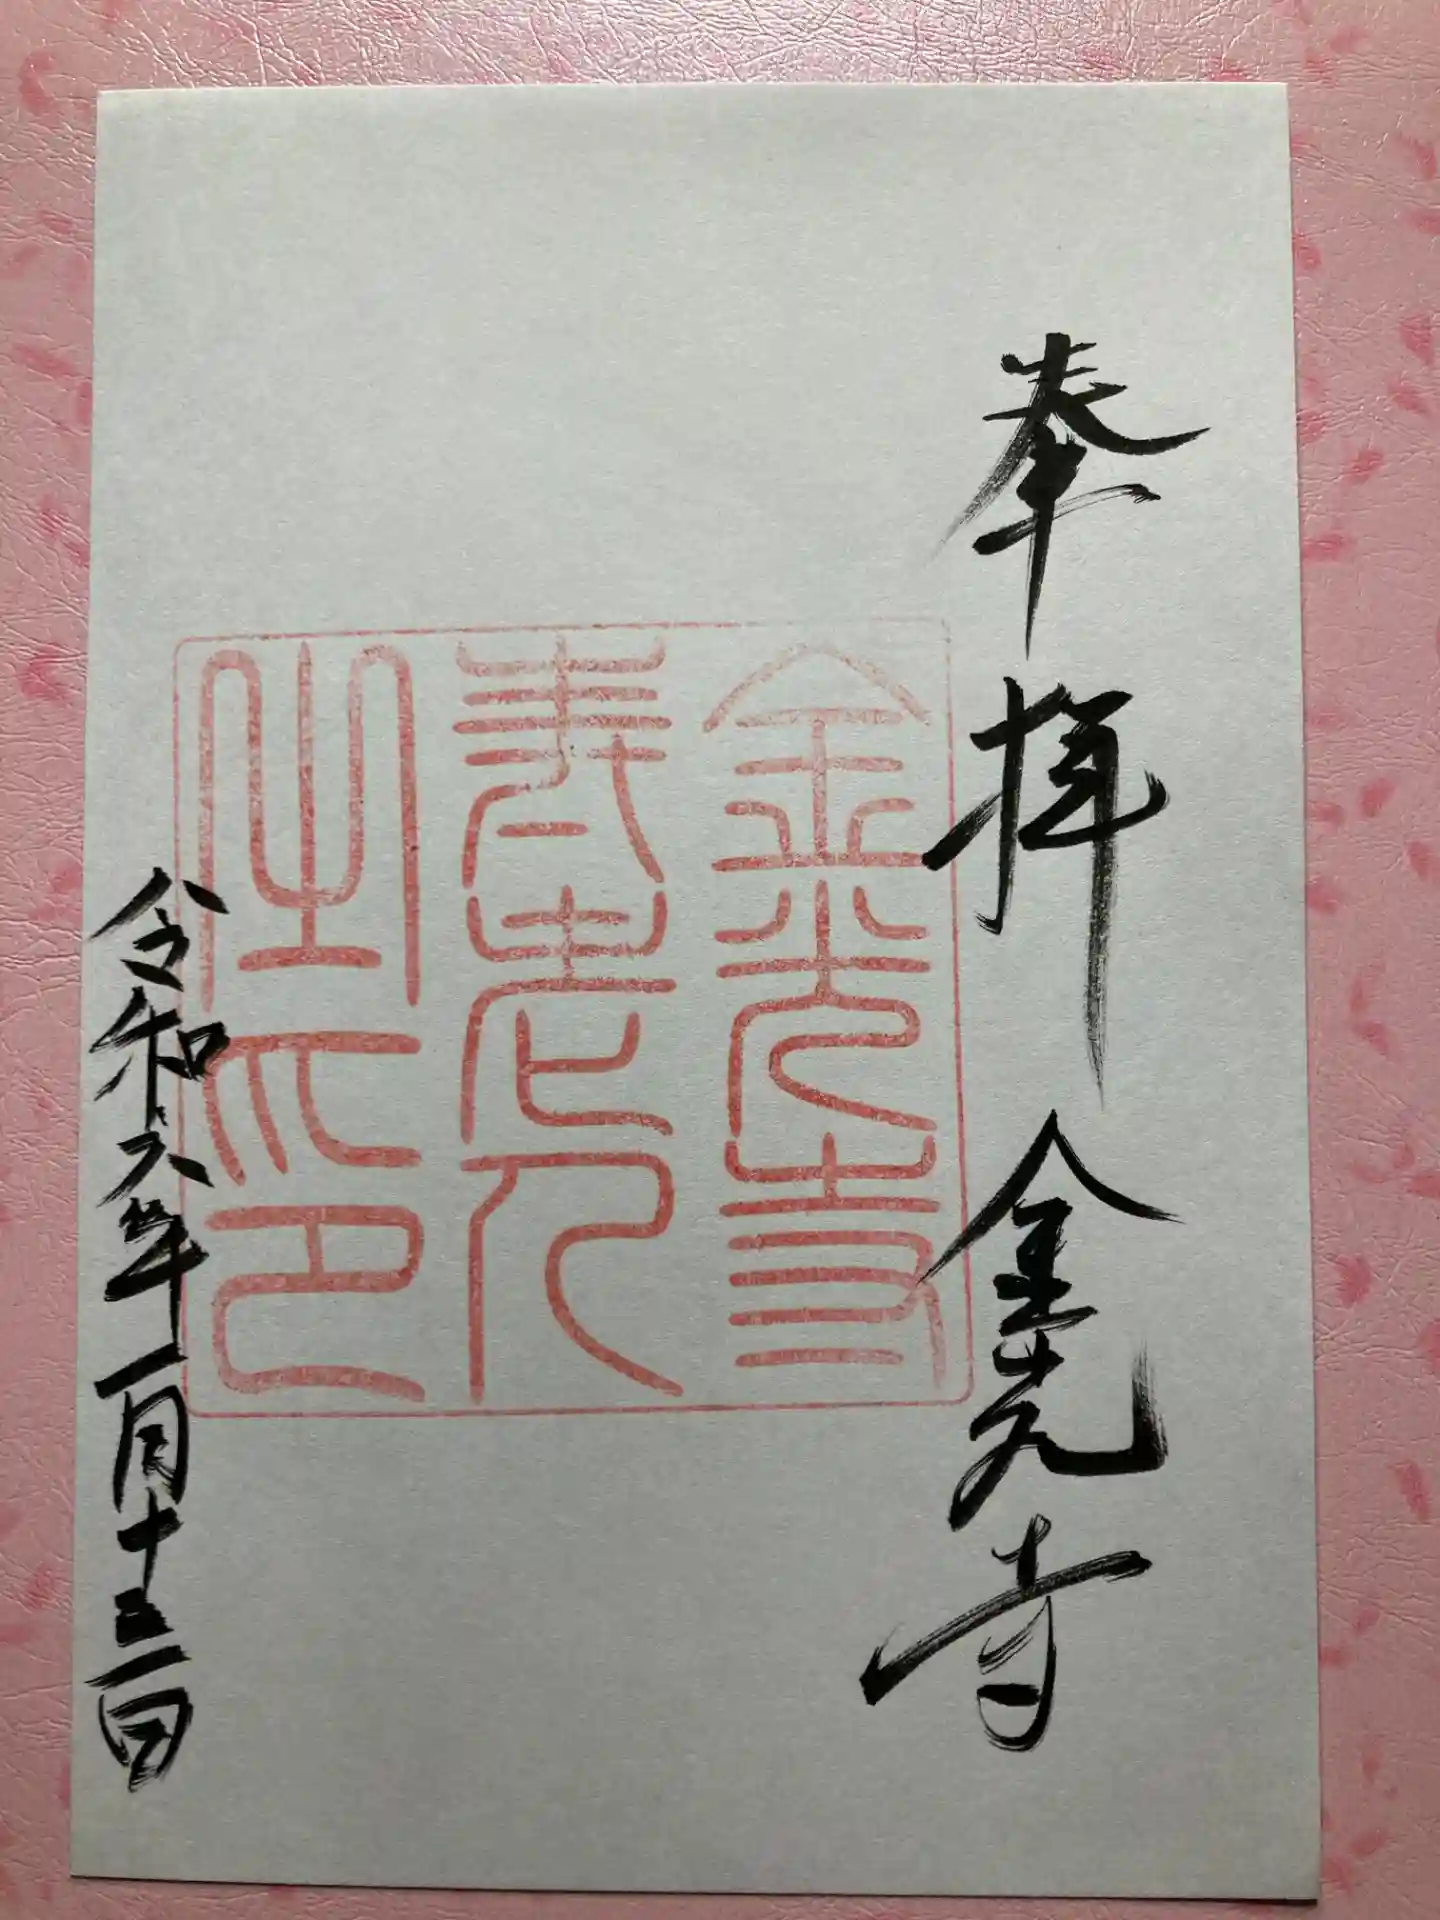 奉拝 金光寺
金光寺
老人
之印
令和六年一月十三日